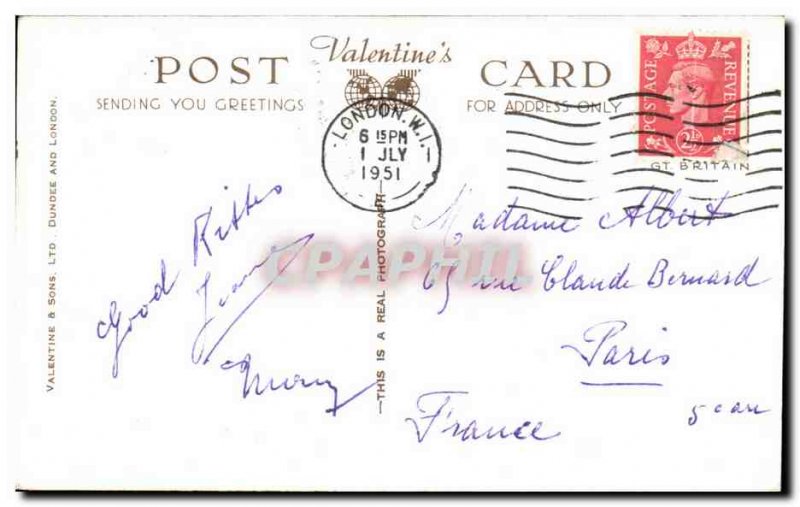 Valentine's
POST CARD
SENDING YOU GREETINGS
FOR ADDRESS ONLY
POSTAGE
REVENUE
2½
GT. BRITAIN
LONDON. W.1.
6 15 PM
1 JLY
1951
VALENTINE & SONS, LTD., DUNDEE AND LONDON.
THIS IS A REAL PHOTOGRAPH
CPAPHIL
Good
Madame Albert
65 rue Claude Bernard
Paris
France